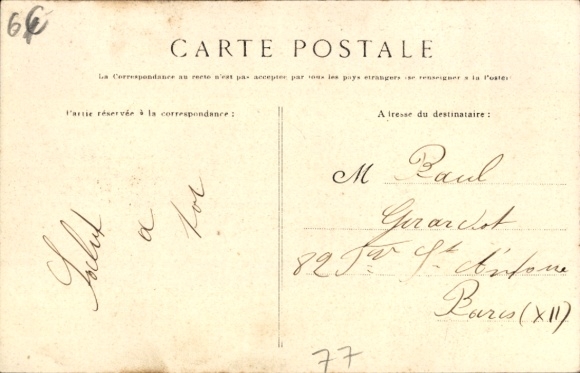 6€
CARTE POSTALE
La Correspondance au recto n'est pas acceptée par tous les pays étrangers (se renseigner à la Poste)
Partie réservée à la correspondance :
Adresse du destinataire :
Salut
a
toi
M Paul
Girardot
82 Fbg St Antoine
Paris (XII)
77